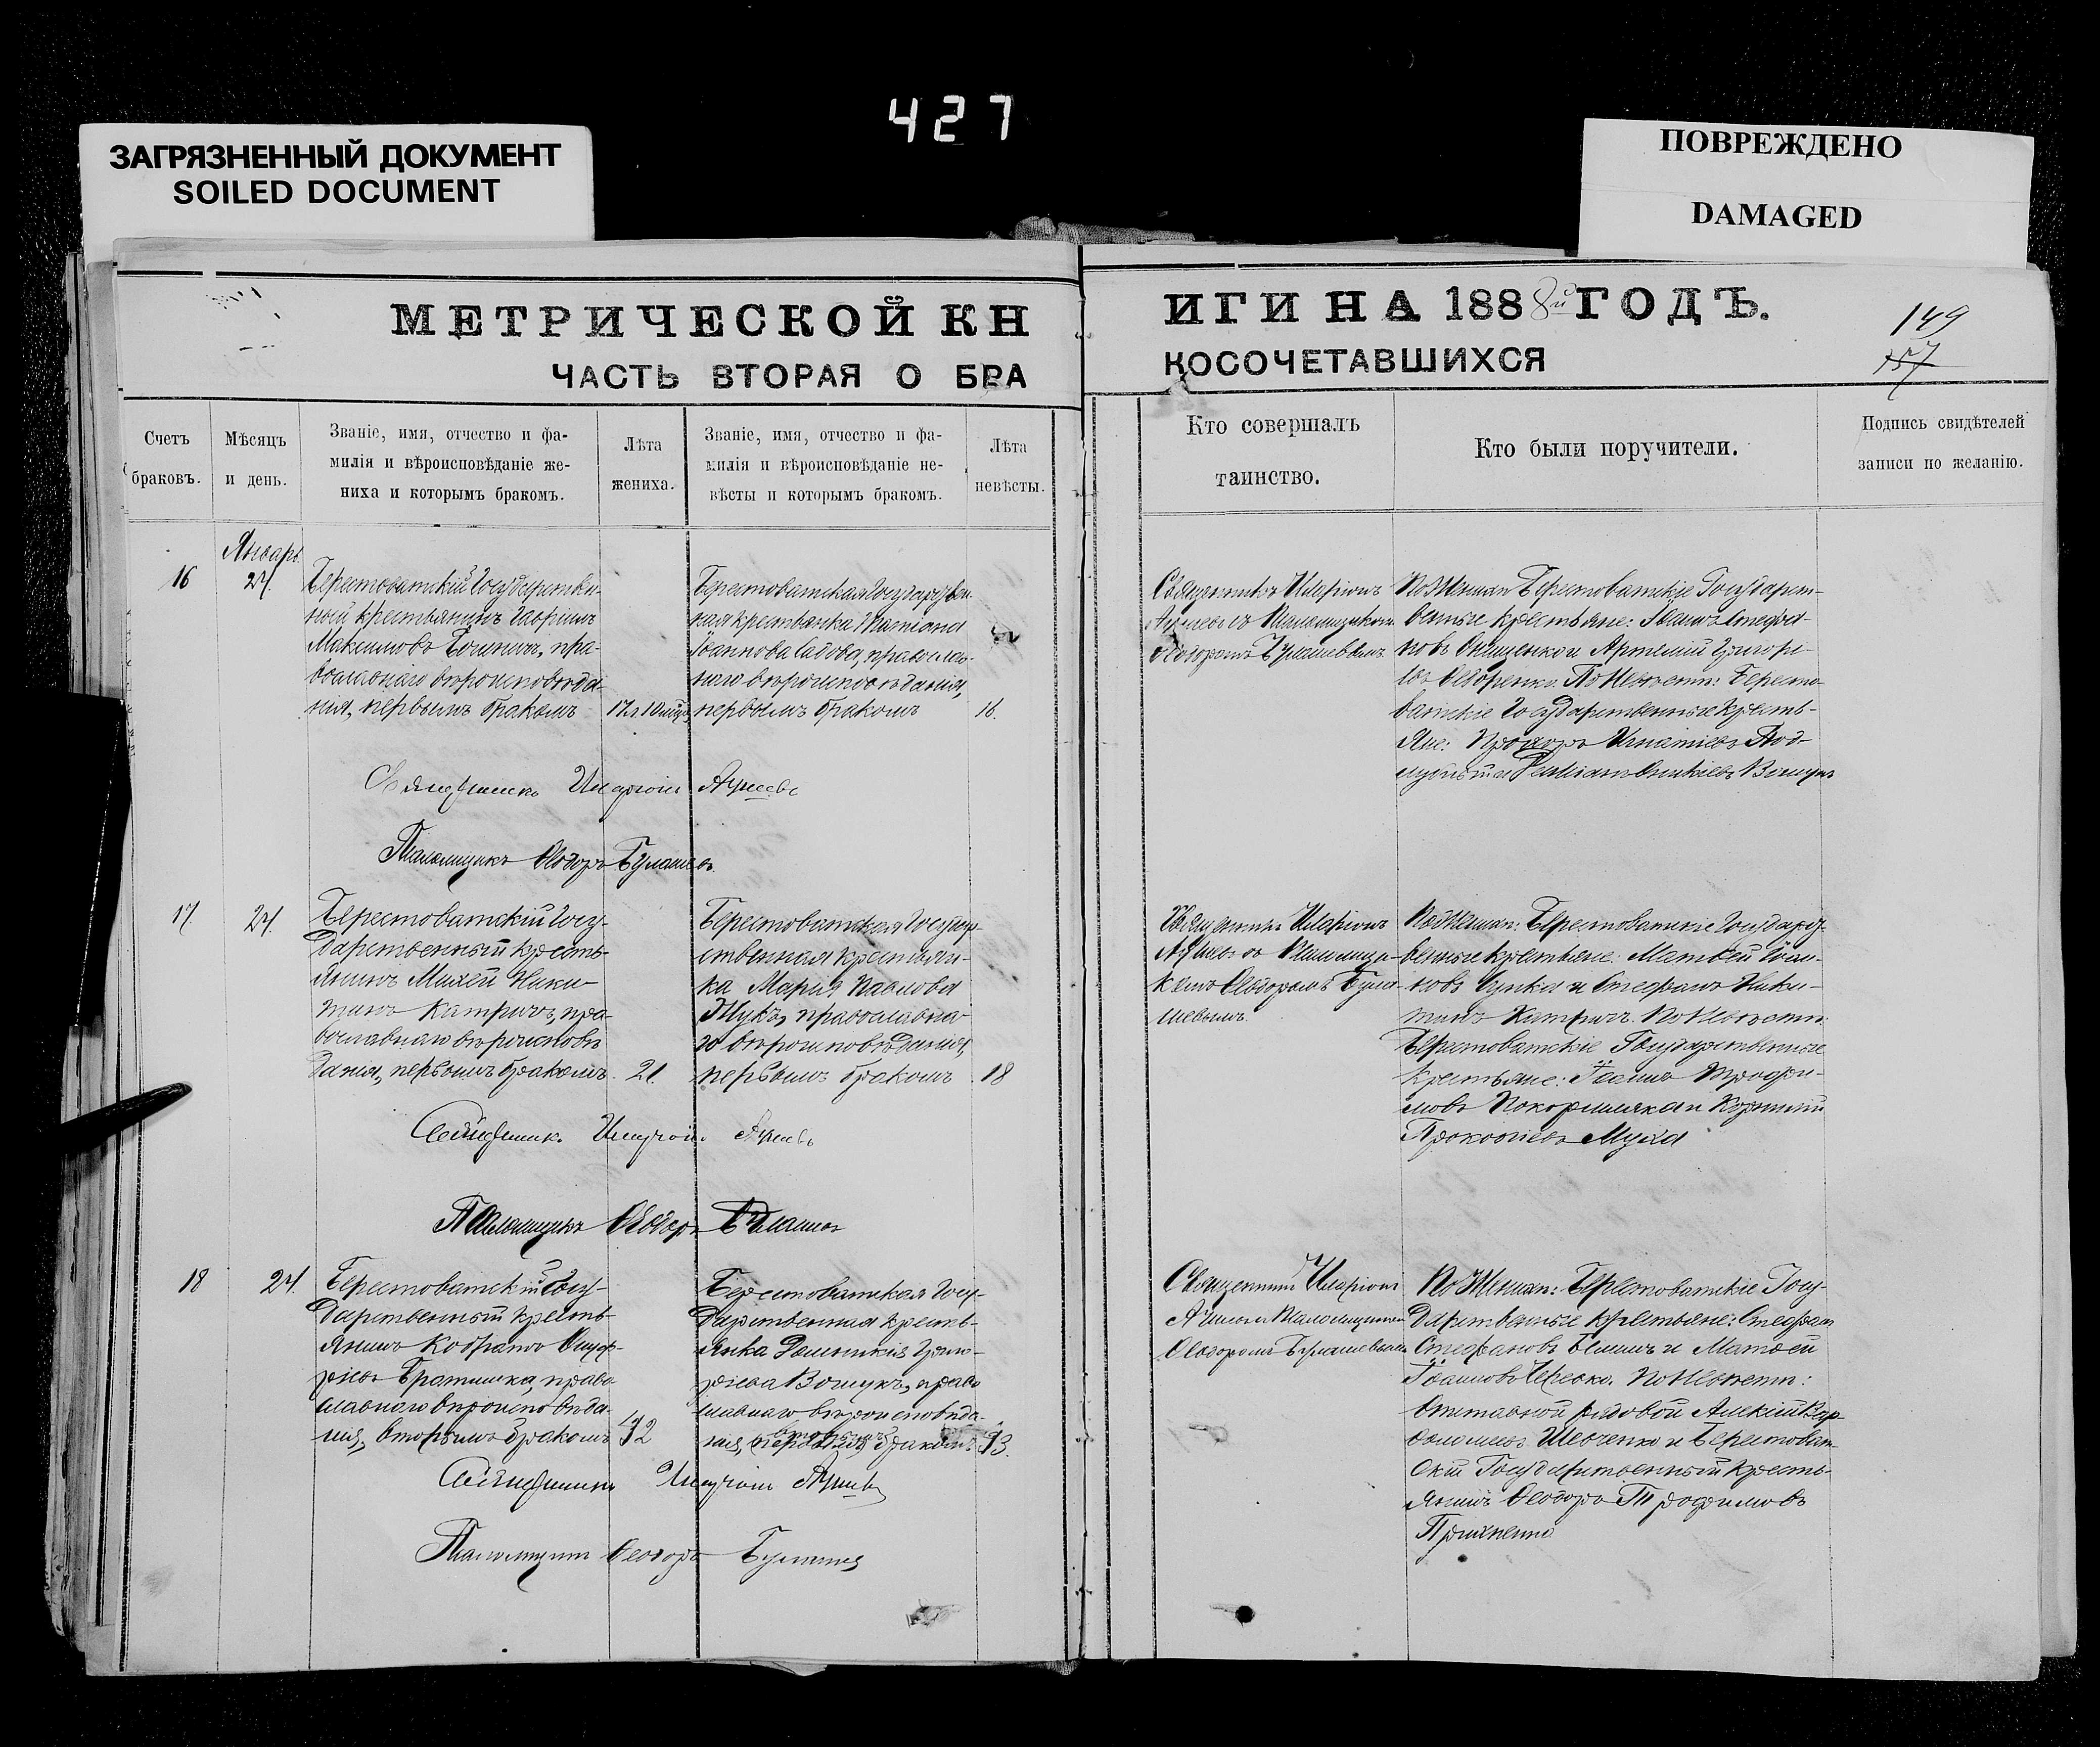 427
ЗАГРЯЗНЕННЫЙ ДОКУМЕНТ
SOILED DOCUMENT
ПОВРЕЖДЕНО
DAMAGED
МЕТРИЧЕСКОЙ КН
ЧАСТЬ ВТОРАЯ О БРА
ИГИ НА 1888й ГОДЪ.
КОСОЧЕТАВШИХСЯ
149
157
Счетъ
браковъ.
Мѣсяцъ
и день.
Званіе, имя, отчество и фа-
милія и вѣроисповѣданіе же-
ниха и которымъ бракомъ.
Лѣта
жениха.
Званіе, имя, отчество и фа-
милія и вѣроисповѣданіе не-
вѣсты и которымъ бракомъ.
Лѣта
невѣсты.
Кто совершалъ
таинство.
Кто были поручители.
Подпись свидѣтелей
записи по желанію.
Январь
16
24.
Берестоватскій Государствен-
ный крестьянинъ Гавріилъ
Максимовъ пра-
вославнаго вѣроисповѣда-
нія, первымъ бракомъ
Берестоватская Государствен
ная крестьянка
Іоаннова православ-
наго вѣроисповѣданія,
первымъ бракомъ
16.
Священникъ Иларіонъ
съ Псаломщикомъ
Ѳеодоромъ
По Женихѣ Берестоватскіе Государст-
венные крестьяне: Іоаннъ Стефа-
новъ Онищенко и Артемій Григорі-
евъ Ѳедоренко. По Невѣстѣ: Бересто-
ватскіе Государственные кресть-
яне: Игнатіевъ Под-
Священникъ Иларіонъ
Псаломщикъ Ѳеодоръ
17
24.
Берестоватскій Госу-
дарственный кресть-
янинъ Михей Ники-
тинъ Катричъ, пра-
вославнаго вѣроисповѣ
данія, первымъ бракомъ
21.
Берестоватская Государ-
ственная крестьян-
ка Марія Павлова
Жукъ, православна-
го вѣроисповѣданія,
первымъ бракомъ
18
Священникъ Иларіонъ
съ Псаломщи-
комъ Ѳеодоромъ Була-
шевымъ.
По Женихѣ: Берестоватскіе Государст-
венные крестьяне: Матвей Іоан-
новъ и Стефанъ Ники-
тинъ Катричъ. По Невѣстѣ:
Берестоватскіе Государственные
крестьяне: Іоаннъ Трофи-
мовъ и Корнилій
Прокопіевъ Муха
Священникъ Иларіонъ
Псаломщикъ Ѳеодоръ
18
24.
Берестоватскій Госу-
дарственный кресть-
янинъ Кодратъ Онуф-
ріевъ Братишка, право
славнаго вѣроисповѣда-
нія, вторымъ бракомъ
Берестоватская Госу-
дарственная кресть-
янка Домникія Григо-
ріева право
славнаго вѣроисповѣда-
нія, вторымъ первымъ бракомъ
Священникъ Иларіонъ
Псаломщикомъ
Ѳеодоромъ Булашевымъ
По Женихѣ: Берестоватскіе Госу-
дарственные крестьяне: Стефанъ
Стефановъ и Матвей
Іоанновъ По Невѣстѣ:
Отставной рядовой Алексій Вар-
Шевченко и Берестоват-
скій Государственный кресть-
янинъ Ѳеодоръ Трофимовъ
Священникъ Иларіонъ
Псаломщикъ Ѳеодоръ